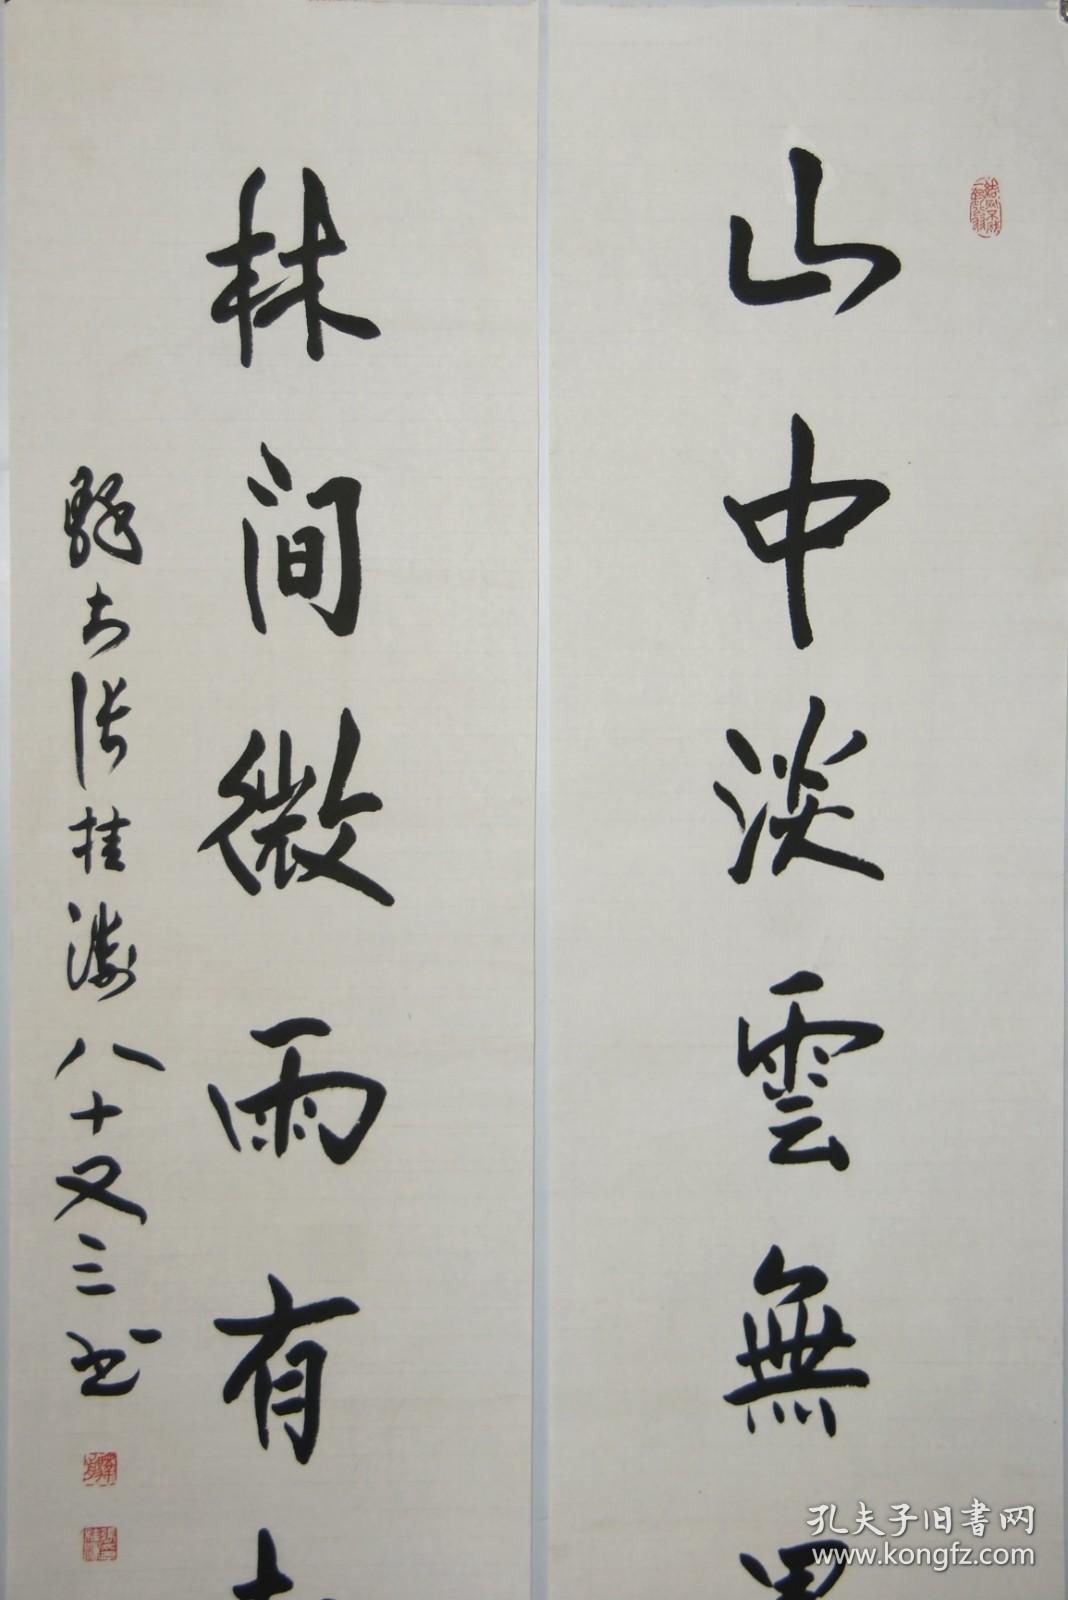 山中淡雲無墨
林间微雨有
張桂瀠八十又三书
孔夫子旧書网
www.kongfz.com